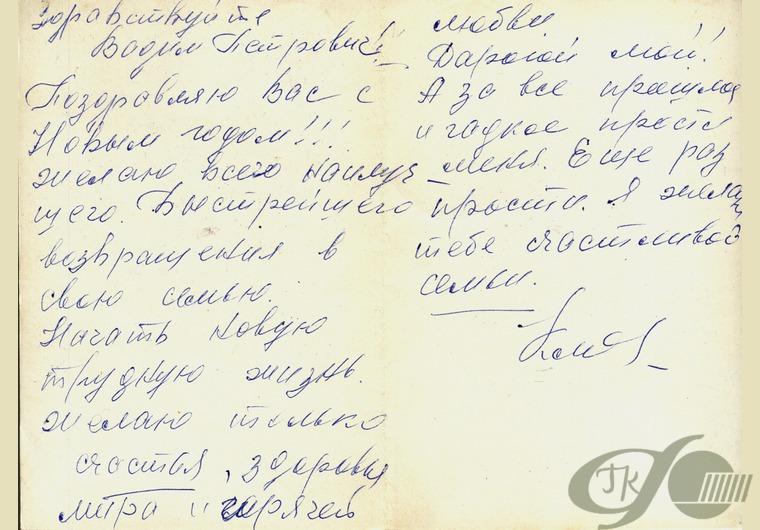 Здравствуйте
Вадим Петрович!!
Поздравляю Вас с
Новым годом!!!
желаю всего наилуч
щего. Быстрейщего
возвращения в
свою семью.
Начать новую
трудную жизнь.
желаю только
счастья, здоровья
мира и горячей
любви
Дарогой мой!
А за все прошлое
и гадкое прости
меня. Еще раз
прости. Я желаю
тебе счастливой
семьи.
ГК